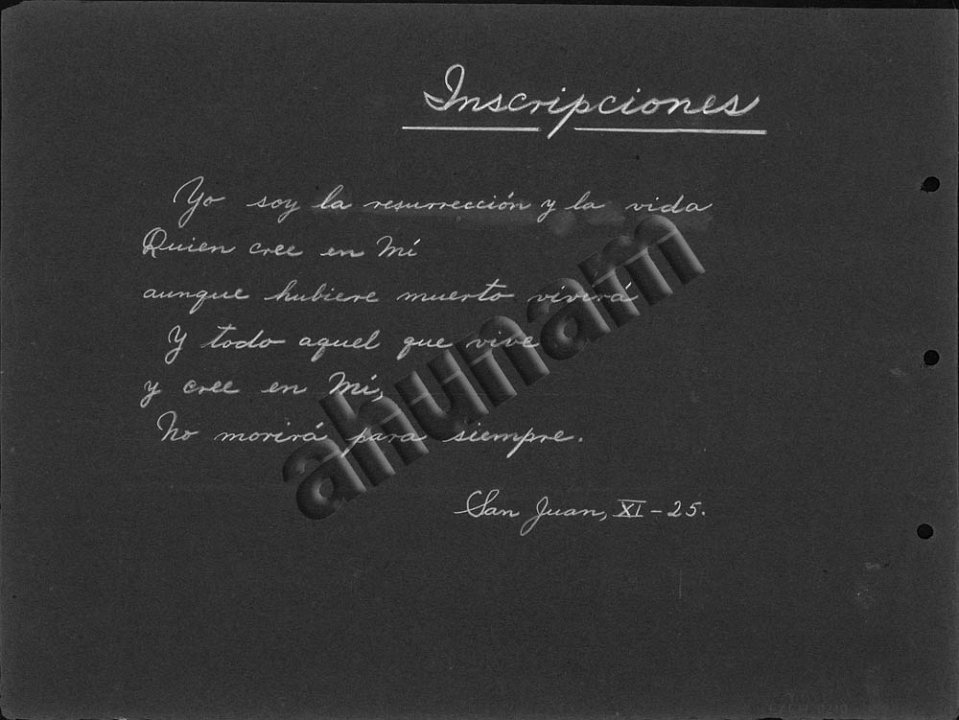 Inscripciones
Yo soy la resurrección y la vida
Quien cree en Mí
aunque hubiere muerto vivirá
Y todo aquel que vive
y cree en Mí,
No morirá para siempre.
San Juan, XI-25.
ahunam